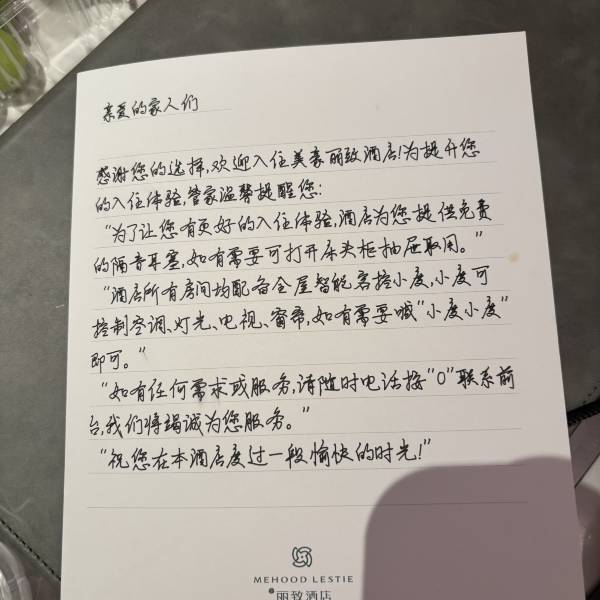 亲爱的家人们
感谢您的选择,欢迎入住美豪丽致酒店!为提升您
的入住体验,管家温馨提醒您:
“为了让您有更好的入住体验,酒店为您提供免费
的隔音耳塞,如有需要可打开床头柜抽屉取用。”
“酒店所有房间均配备全屋智能客控小度,小度可
控制空调、灯光、电视、窗帘,如有需要喊“小度小度”
即可。”
“如有任何需求或服务,请随时电话按“0”联系前
台,我们将竭诚为您服务。”
“祝您在本酒店度过一段愉快的时光!”
MEHOOD LESTIE
丽致酒店